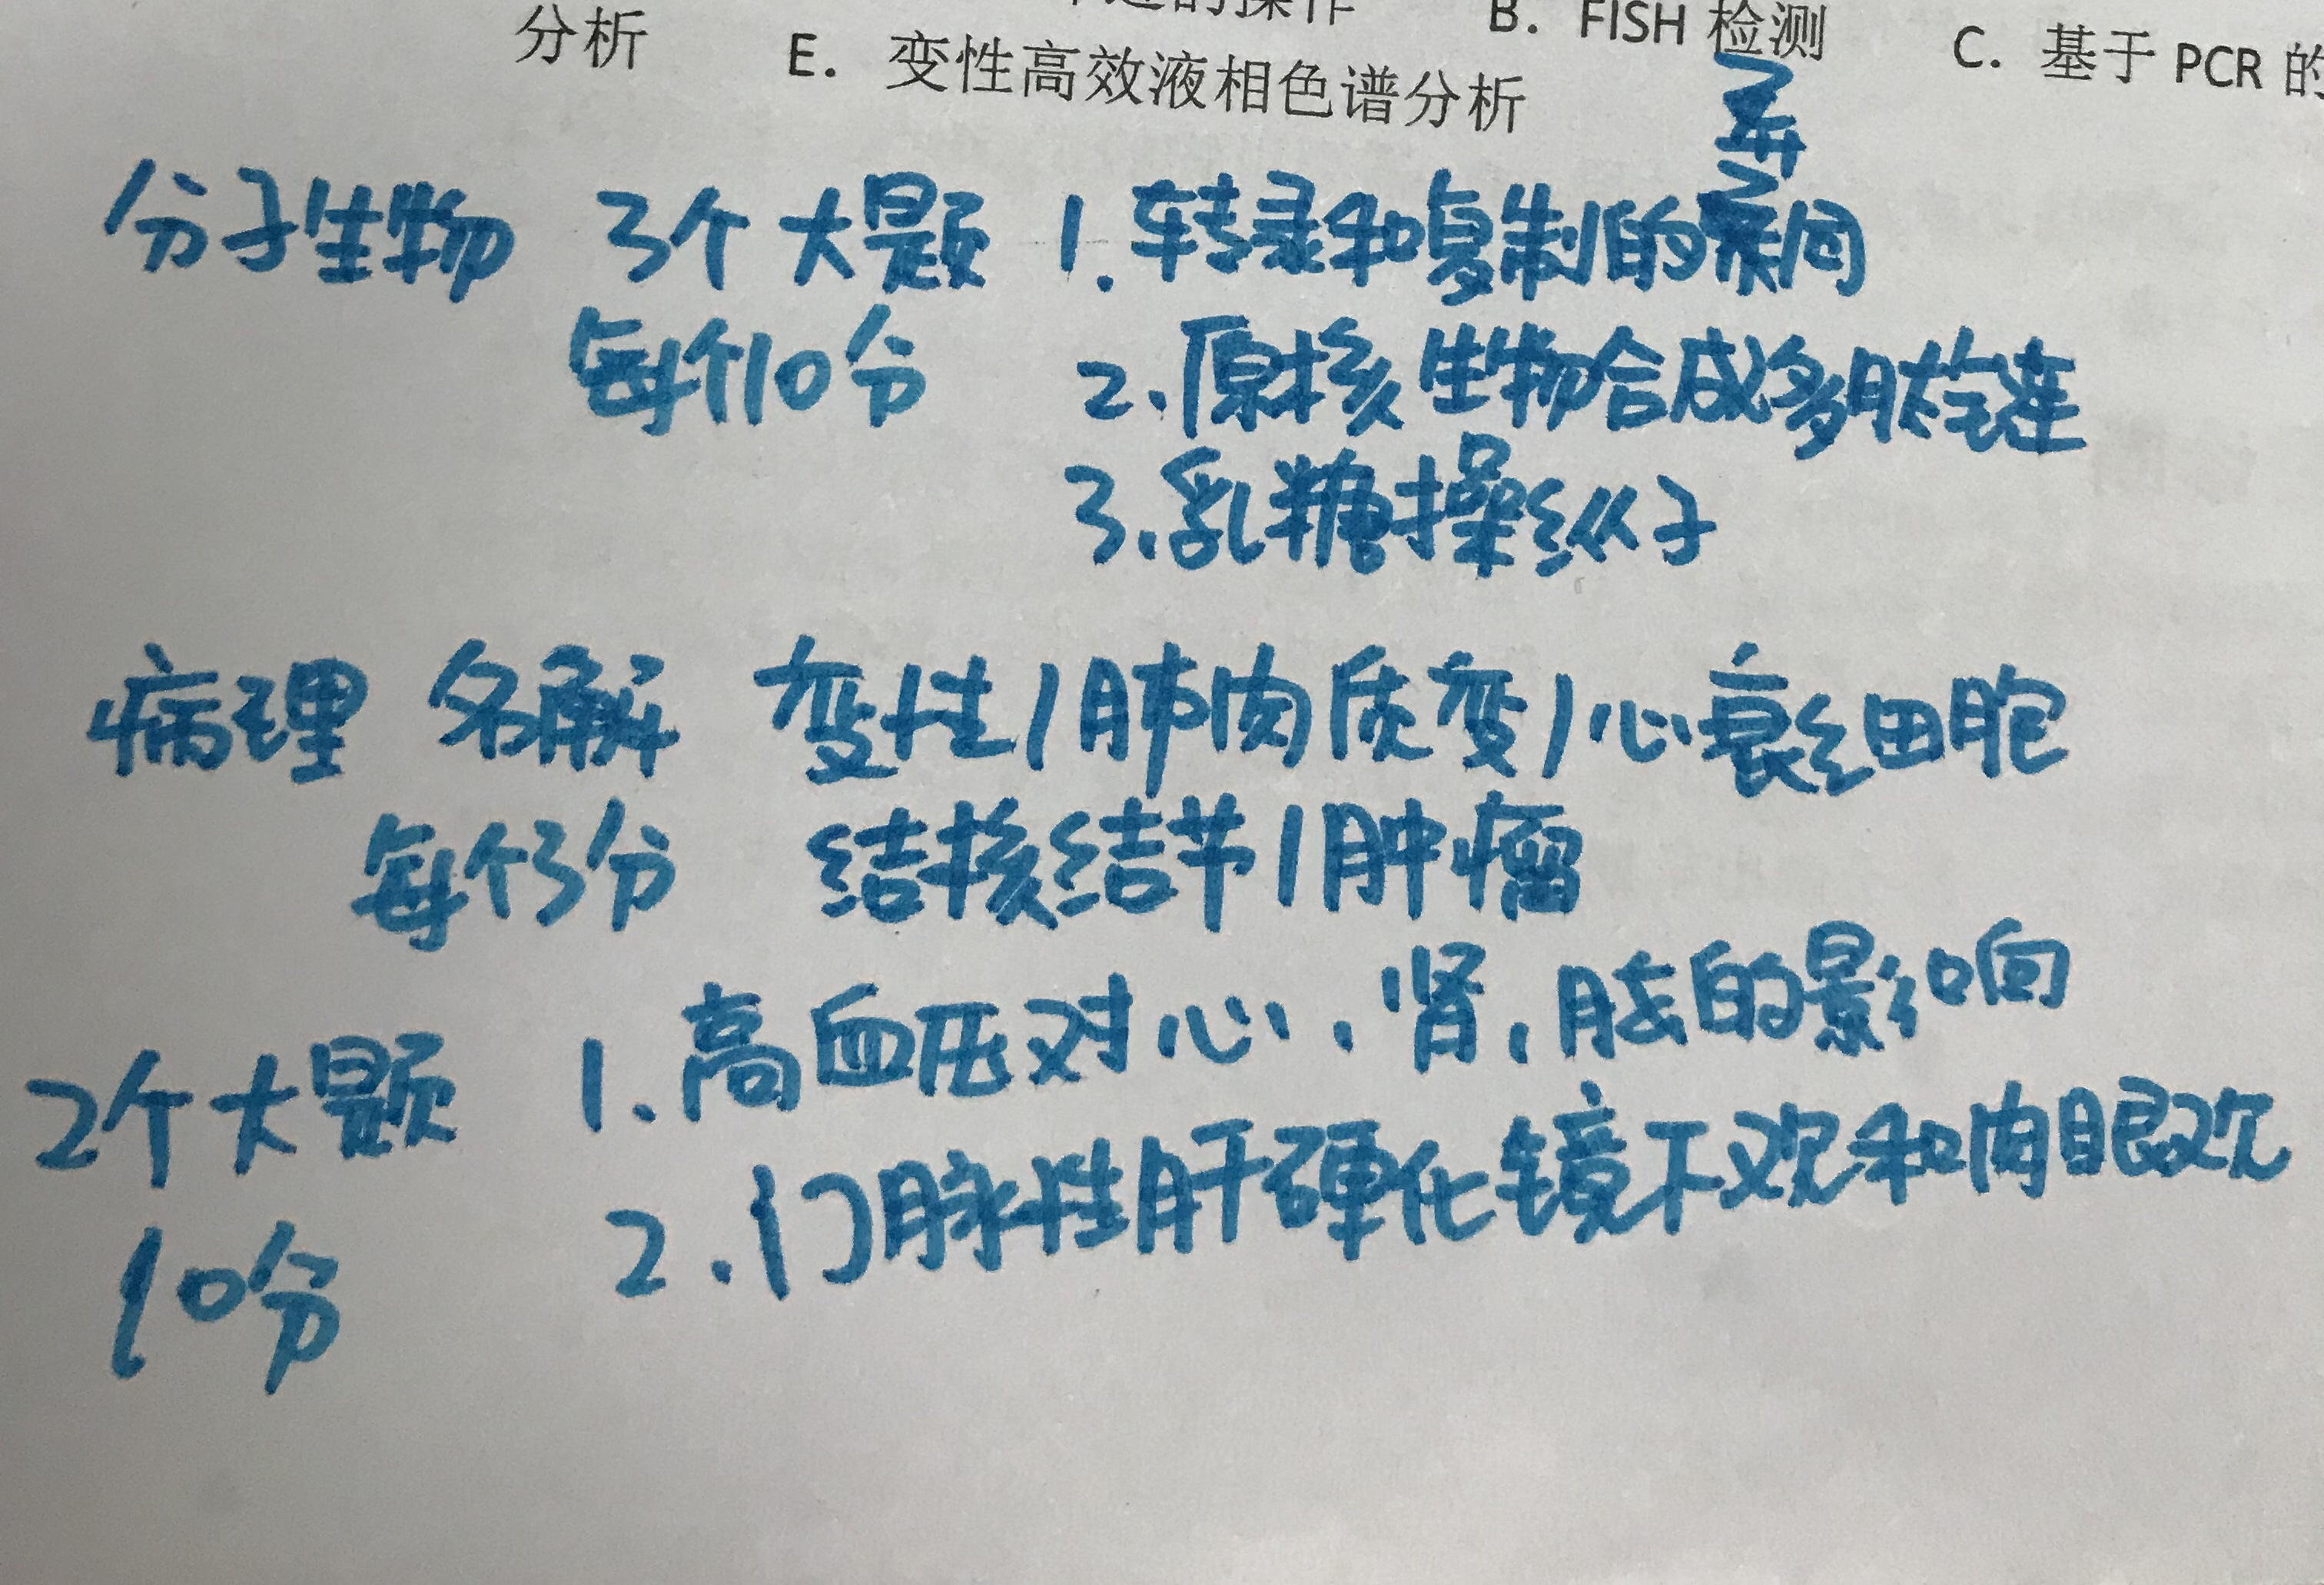 的操作 B. FISH 检测 C. 基于 PCR 的
分析 E. 变性高效液相色谱分析
异
分子生物 3个大题 1.转录和复制的 同
每个10分 2.原核生物合成多肽链
3.乳糖操纵子
病理 名解 变性/肺肉质变/心衰细胞
每个3分 结核结节/肿瘤
2个大题 1.高血压对心、肾、脑的影响
10分 2.门脉性肝硬化镜下观和肉眼观